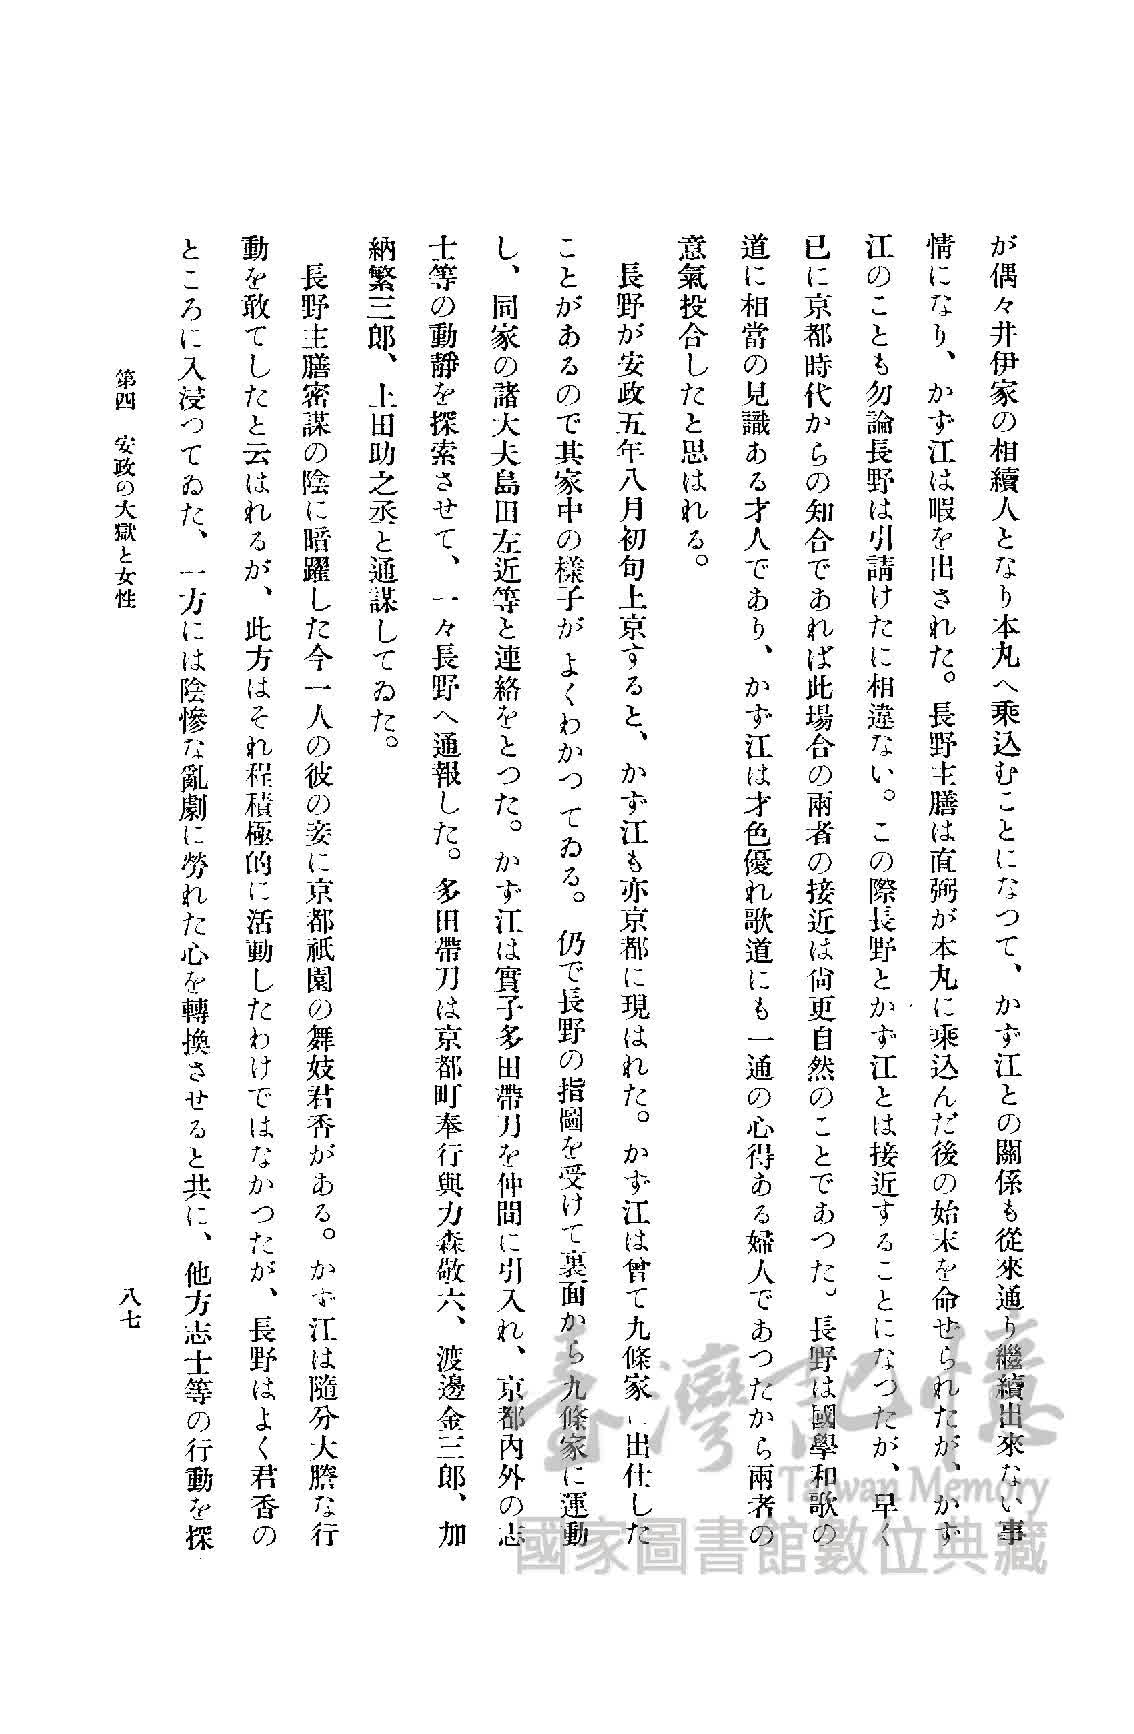 が偶々井伊家の相續人となり本丸へ乘込むことになつて、かず江との關係も從來通り繼續出來ない事
情になり、かず江は暇を出された。長野主膳は直弼が本丸に乘込んだ後の始末を命せられたが、かず
江のことも勿論長野は引請けたに相違ない。この際長野とかず江とは接近することになつたが、早く
已に京都時代からの知合であれば此場合の兩者の接近は尙更自然のことであつた。長野は國學和歌の
道に相當の見識ある才人であり、かず江は才色優れ歌道にも一通の心得ある婦人であつたから兩者の
意氣投合したと思はれる。
長野が安政五年八月初旬上京すると、かず江も亦京都に現はれた。かず江は曾て九條家に出仕した
ことがあるので其家中の樣子がよくわかつてゐる。仍で長野の指圖を受けて裏面から九條家に運動
し、同家の諸大夫島田左近等と連絡をとつた。かず江は實子多田帶刀を仲間に引入れ、京都內外の志
士等の動靜を探索させて、一々長野へ通報した。多田帶刀は京都町奉行與力森敬六、渡邊金三郎、加
納繁三郎、上田助之丞と通謀してゐた。
長野主膳密謀の陰に暗躍した今一人の彼の妾に京都祇園の舞妓君香がある。かず江は隨分大膽な行
動を敢てしたと云はれるが、此方はそれ程積極的に活動したわけではなかつたが、長野はよく君香の
ところに入浸つてゐた、一方には陰慘な亂劇に勞れた心を轉換させると共に、他方志士等の行動を探
第四 安政の大獄と女性
八七
臺灣記憶
Taiwan Memory
國家圖書館數位典藏